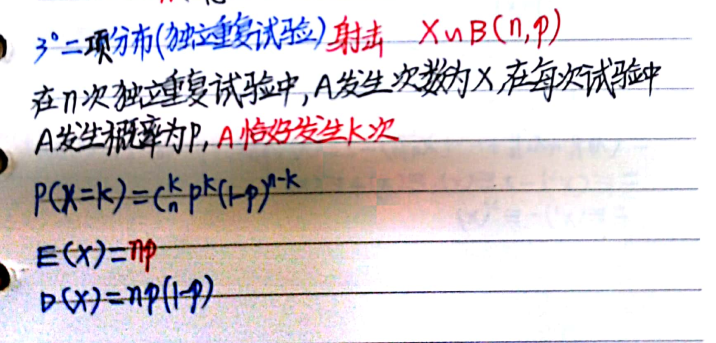 3°二项分布(独立重复试验)射击 X∽B(n,p)
在n次独立重复试验中,A发生次数为X,在每次试验中
A发生概率为P,A恰好发生k次
P(X=k)=C_n^k p^k(1-p)^{n-k}
E(X)=np
D(X)=np(1-p)